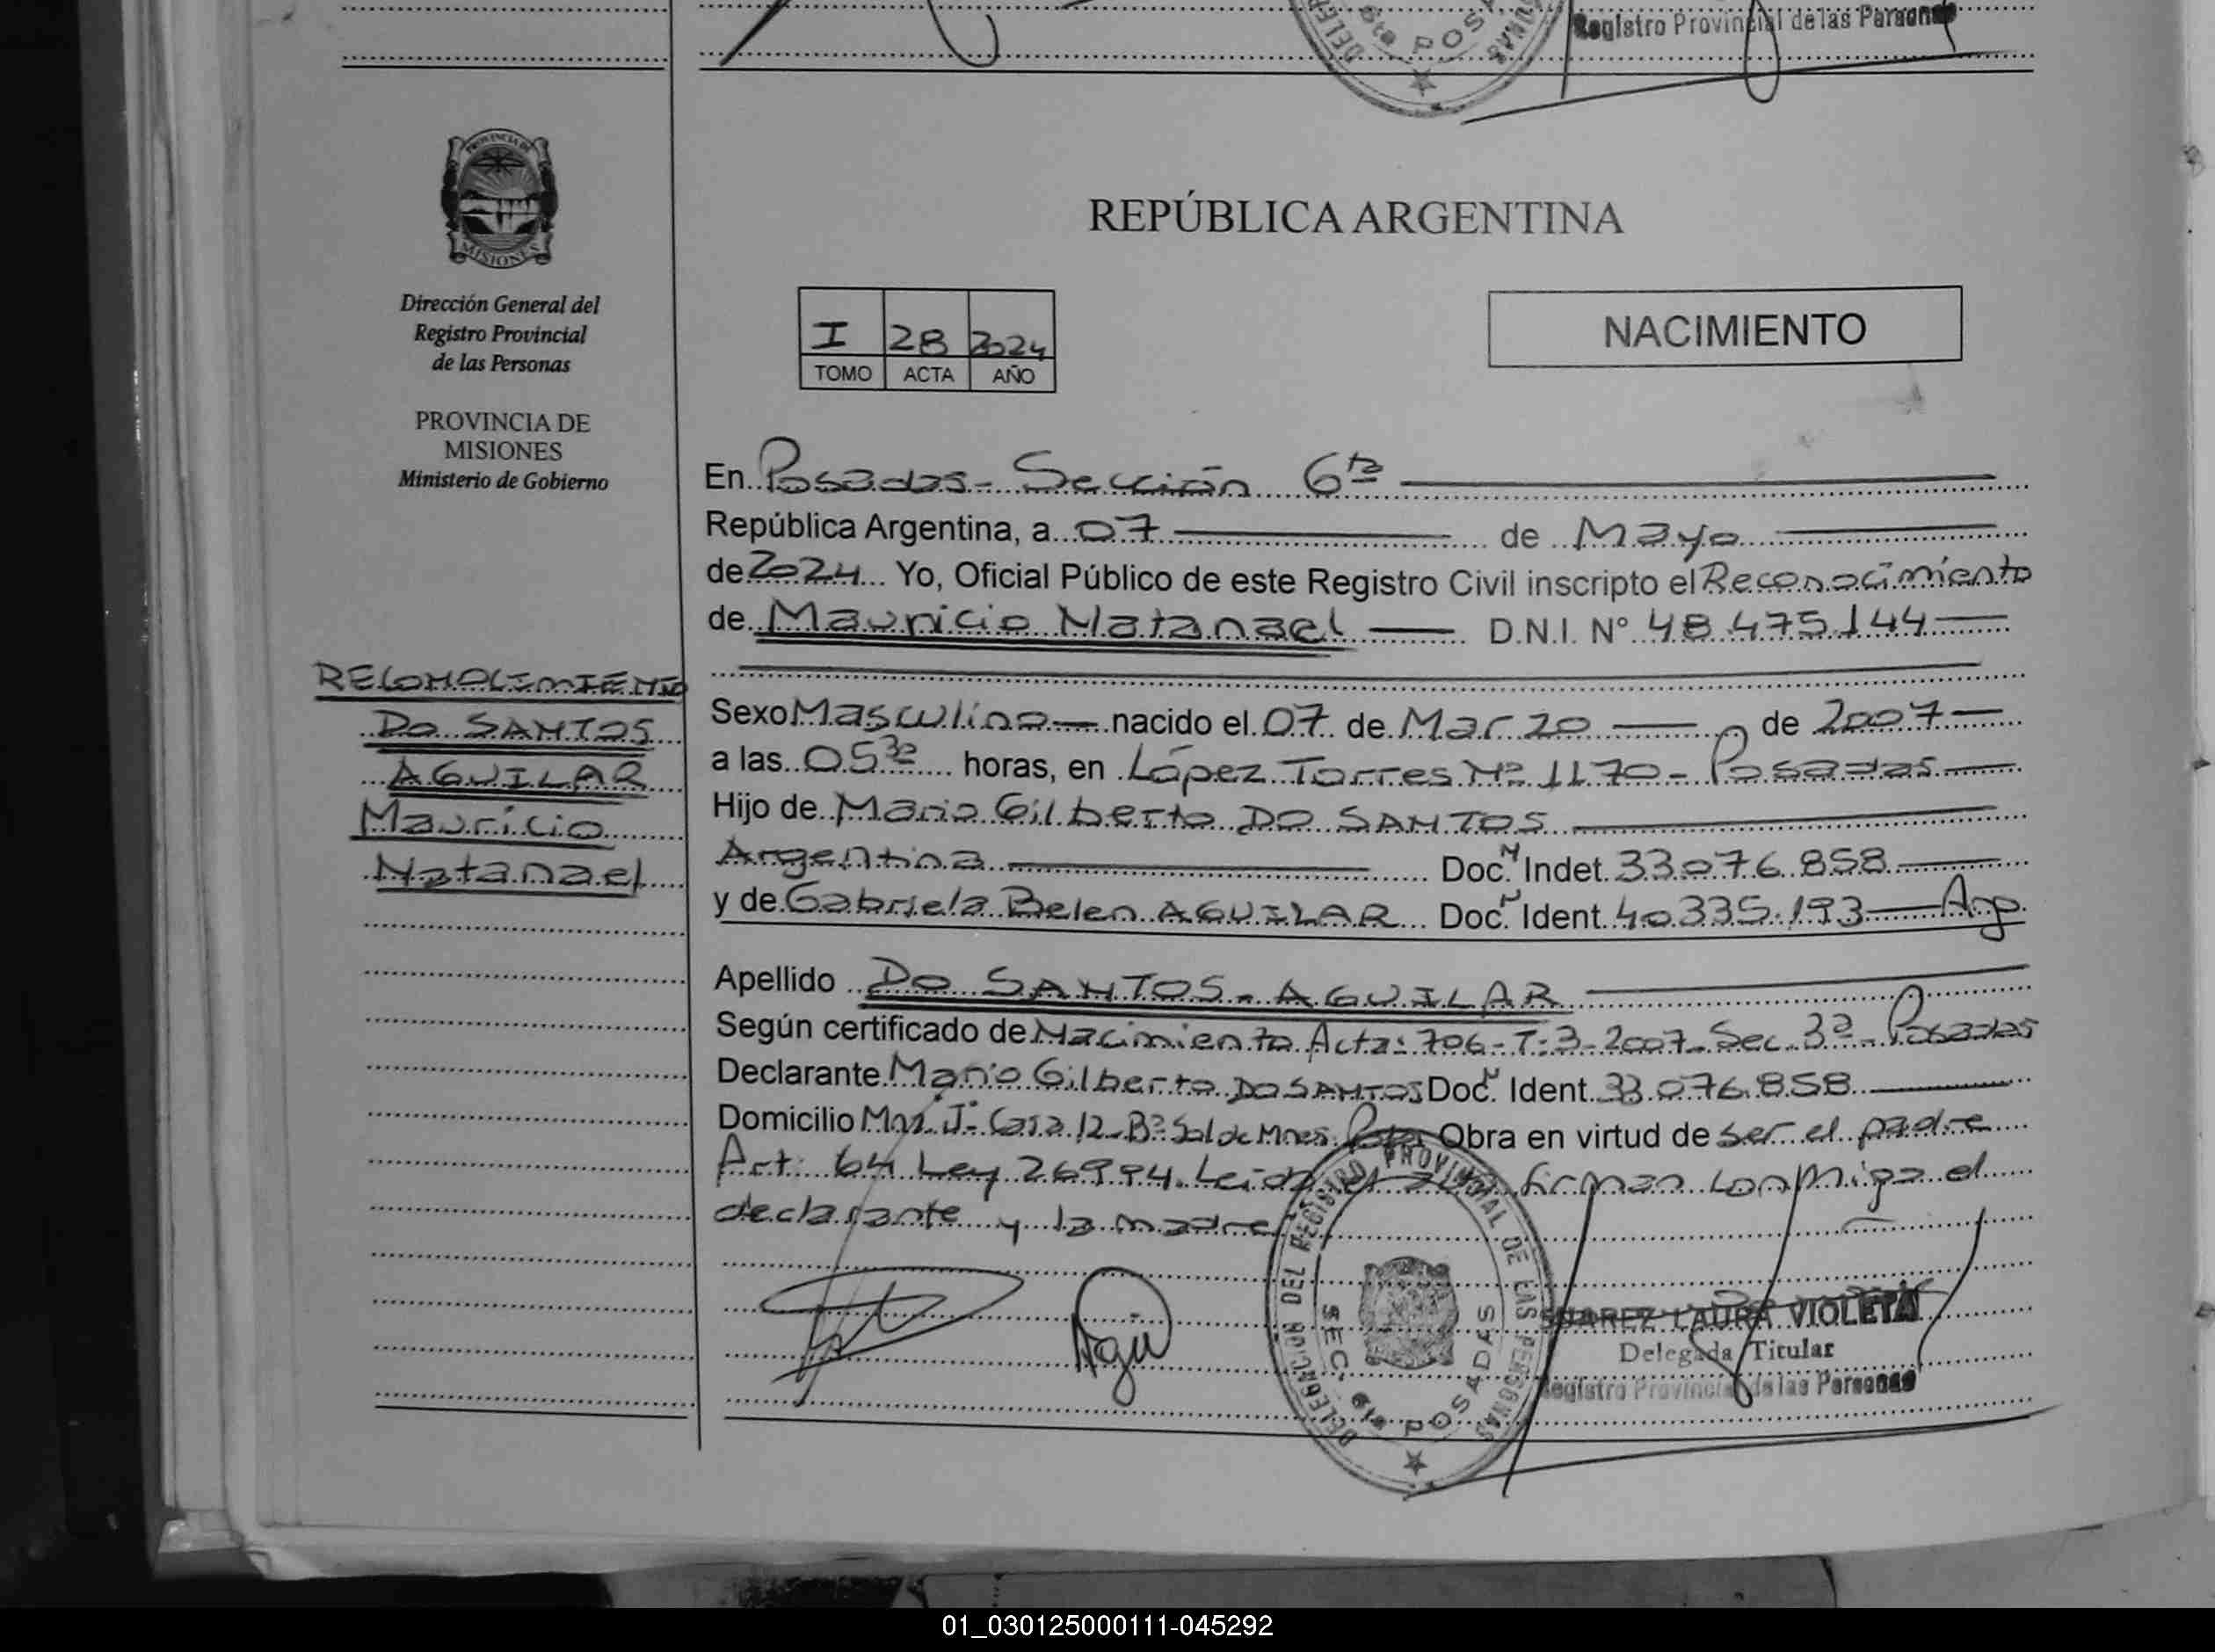 Registro Provincial de las Personas
PROVINCIA DE
MISIONES
Dirección General del
Registro Provincial
de las Personas
PROVINCIA DE
MISIONES
Ministerio de Gobierno
RECONOCIMIENTO
DO SANTOS
AGUILAR
Mauricio
Natanael
REPÚBLICA ARGENTINA
I 28 2024
TOMO ACTA AÑO
NACIMIENTO
En Posadas - Sección 6ta
República Argentina, a 07 de Mayo
de 2024 Yo, Oficial Público de este Registro Civil inscripto el Reconocimiento
de Mauricio Natanael D.N.I. N° 48.475.144
Sexo Masculino nacido el 07 de Marzo de 2007
a las 05 30 horas, en López Torres Nº 1170 - Posadas
Hijo de Mario Gilberto DO SANTOS
Argentina Doc. N Indet. 33.076.858
y de Gabriela Belen AGUILAR Doc. N Ident. 40.335.193 Arg.
Apellido DO SANTOS - AGUILAR
Según certificado de Nacimiento Acta: 706 - T: 3 - 2007 - Sec. 3ª - Posadas
Declarante Mario Gilberto DO SANTOS Doc. N Ident. 33.076.858
Domicilio Mnz. J - Casa 12 - Bº Sol de Mnes. Obra en virtud de ser el padre
Art: 64 Ley 26994. Leida el acta firman conmigo el
declarante y la madre
Agui
DELEGACION DEL REGISTRO PROVINCIAL DE LAS PERSONAS
SEC. 6ta POSADAS
SUAREZ LAURA VIOLETA
Delegada Titular
Registro Provincial de las Personas
01_030125000111-045292